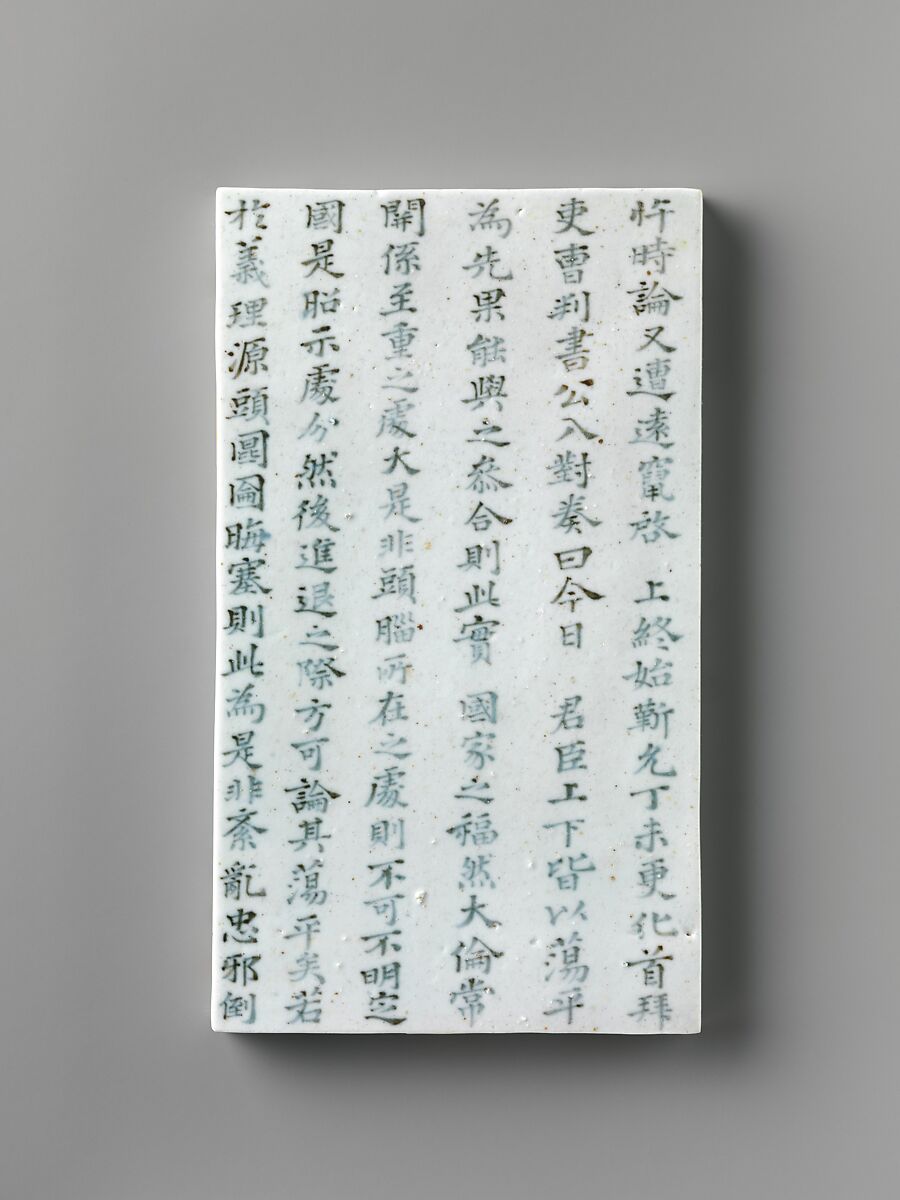 忤時論又遭遠竄啓 上終始靳允丁未更化首拜
吏曹判書公入對奏曰今日 君臣上下皆以蕩平
為先果能與之叅合則此實 國家之福然大倫常
開係至重之處大是非頭腦所在之處則不可不明定
國是昭示處分然後進退之際方可論其蕩平矣若
於義理源頭圖圇晦塞則此為是非紊亂忠邪倒